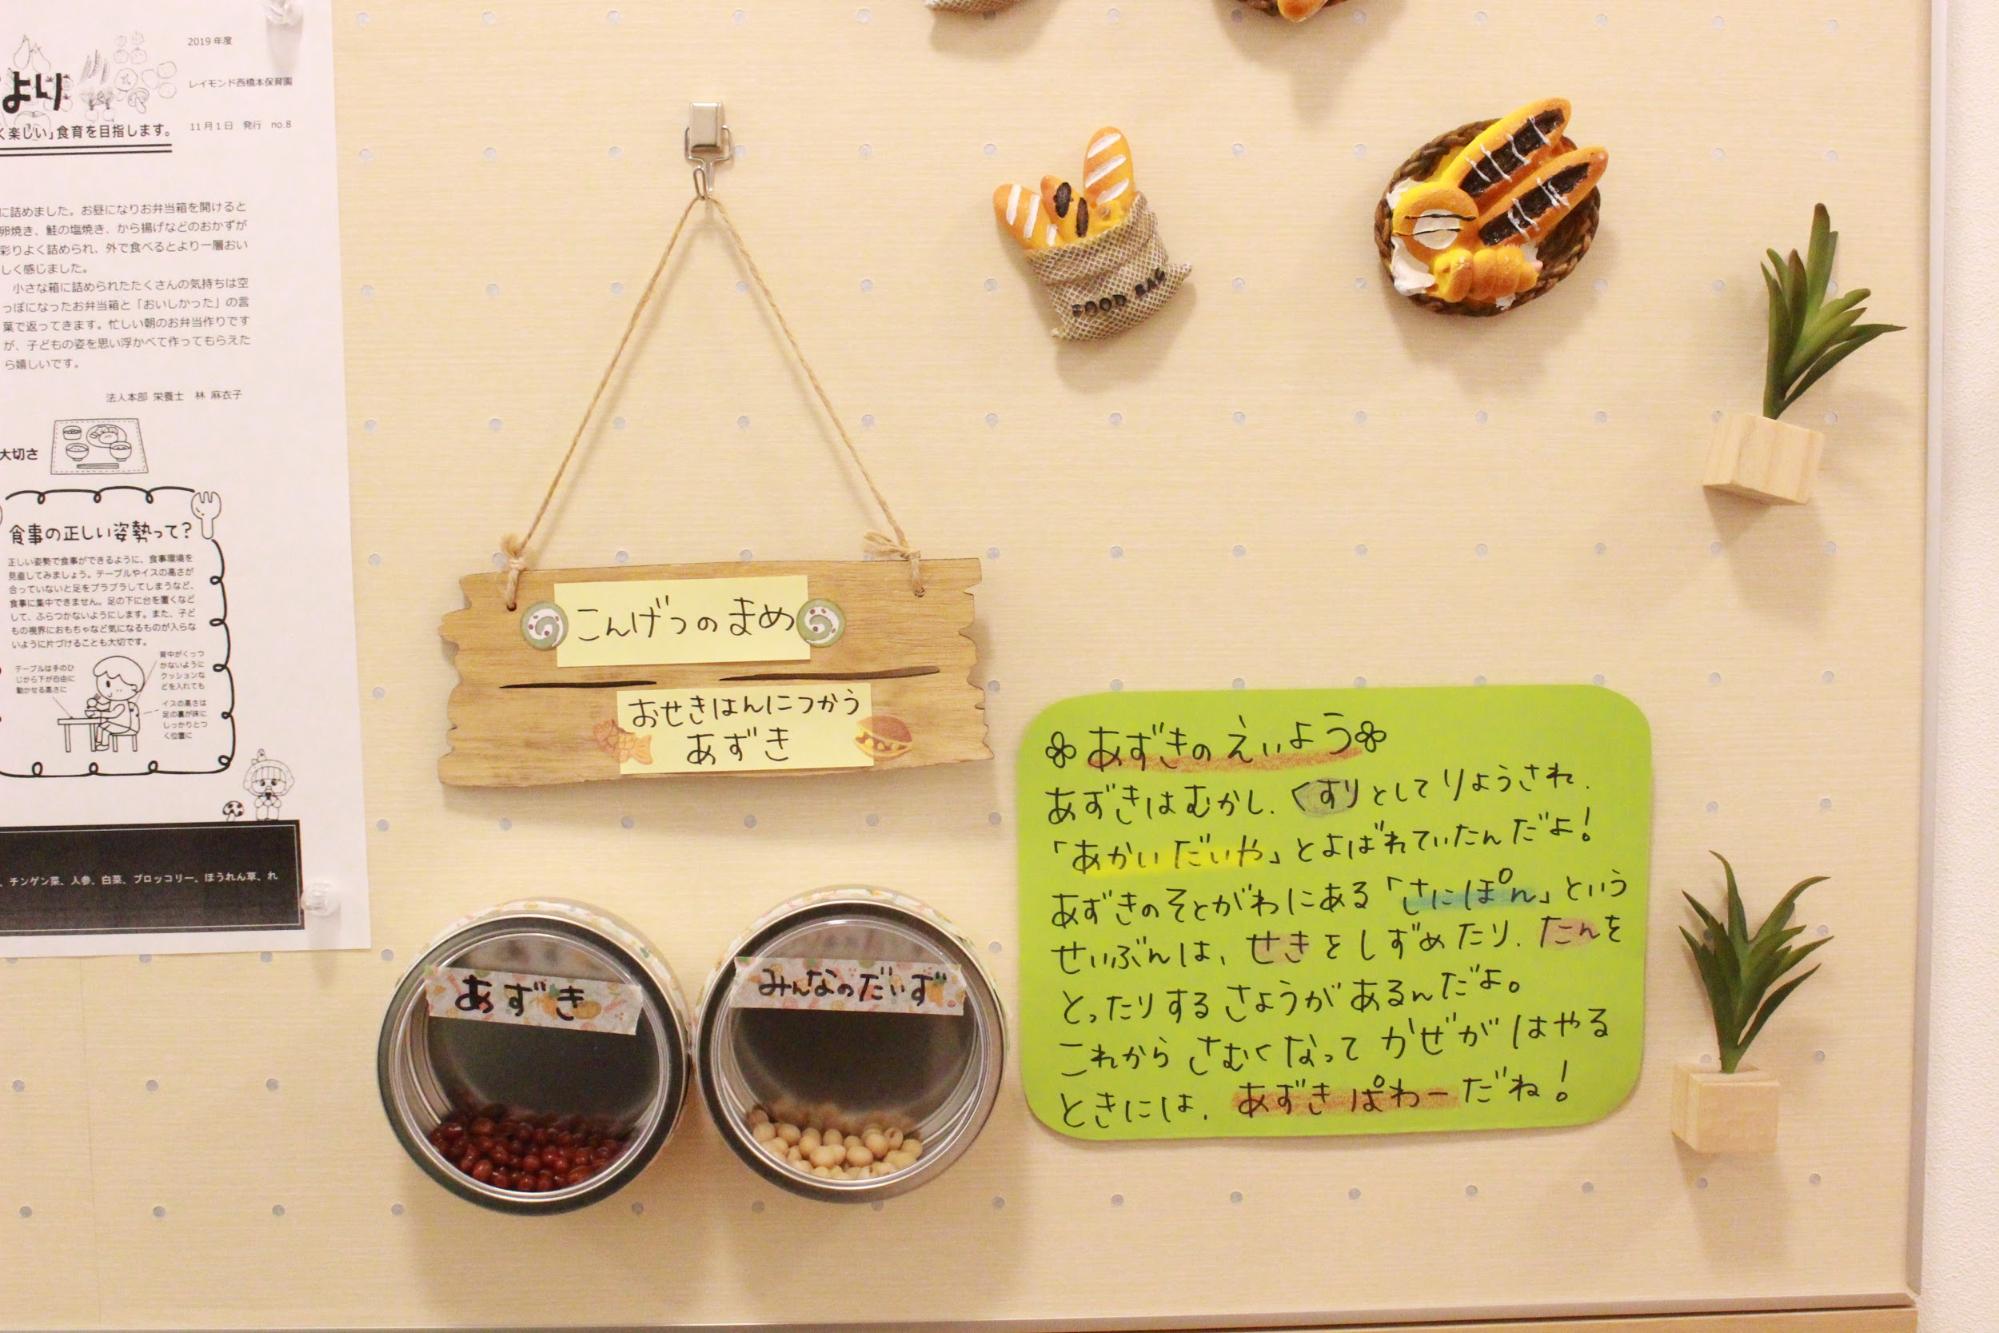 2019年度
より
レイモンド西橋本保育園
く楽しい」食育を目指します。
11月1日 発行 no.8
に詰めました。お昼になりお弁当箱を開けると
卵焼き、鮭の塩焼き、から揚げなどのおかずが
彩りよく詰められ、外で食べるとより一層おい
しく感じました。
小さな箱に詰められたたくさんの気持ちは空
っぽになったお弁当箱と「おいしかった」の言
葉で返ってきます。忙しい朝のお弁当作りです
が、子どもの姿を思い浮かべて作ってもらえた
ら嬉しいです。
法人本部 栄養士 林 麻衣子
大切さ
食事の正しい姿勢って?
正しい姿勢で食事ができるように、食事環境を
見直してみましょう。テーブルやイスの高さが
合っていないと足をブラブラしてしまうなど、
食事に集中できません。足の下に台を置くなど
して、ふらつかないようにします。また、子ど
もの視界におもちゃなど気になるものが入らな
いように片づけることも大切です。
テーブルは手のひ
じから下が自由に
動かせる高さに
背中がくっつ
かないように
クッションな
どを入れても
イスの高さは
足の裏が床に
しっかりとつ
く位置に
、チンゲン菜、人参、白菜、ブロッコリー、ほうれん草、れ
FOOD BAG
こんげつのまめ
おせきはんにつかう
あずき
あずき
みんなのだいず
あずきのえいよう
あずきはむかし、くすりとしてりようされ、
「あかいだいや」とよばれていたんだよ!
あずきのそとがわにある「さにぽん」という
せいぶんは、せきをしずめたり、たんを
とったりするさようがあるんだよ。
これからさむくなってかぜがはやる
ときには、あずきぱわーだね!